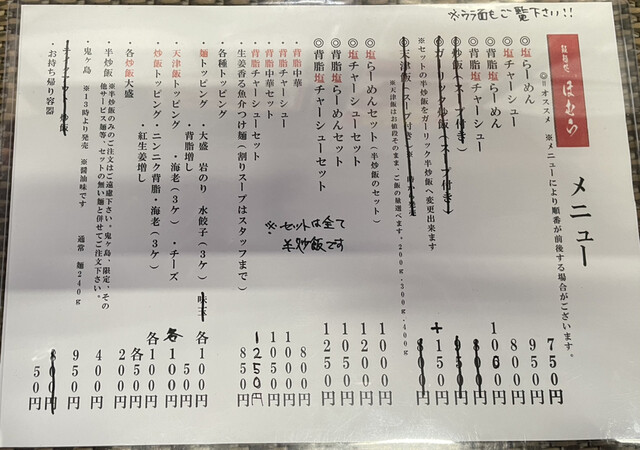 ※ウラ面もご覧下さい!!
ほむら
メニュー
◎＝オススメ ※メニューにより順番が前後する場合がございます。
◎塩らーめん 750円
◎塩チャーシュー 950円
◎背脂塩らーめん 800円
◎背脂塩チャーシュー 1000円
◎炒飯(スープ付き) 800円
◎ガーリック炒飯(スープ付き) 950円
※セットの半炒飯をガーリック半炒飯へ変更出来ます +150円
◎天津飯(スープ付き) 800円
※天津飯はお値段そのまま、ご飯の量選べます。200g、300g、400g
◎塩らーめんセット(半炒飯のセット) 1000円
◎塩チャーシューセット 1200円
◎背脂塩らーめんセット 1050円
◎背脂塩チャーシューセット 1250円
※セットは全て
半炒飯です
・背脂中華 800円
・背脂チャーシュー 1000円
・背脂中華セット 1050円
・背脂チャーシューセット 1250円
・生姜香る魚介つけ麺(割りスープはスタッフまで) 850円
・各種トッピング
麺トッピング ・大盛 岩のり 水餃子(3ケ) 味玉 各100円
・背脂増し 50円
天津飯トッピング ・海老(3ケ) ・チーズ 各100円
炒飯トッピング ・ニンニク背脂・海老(3ケ) 各100円
・紅生姜増し 各50円
・各炒飯大盛 200円
・半炒飯 ※半炒飯のみのご注文はご遠慮下さい。鬼ヶ島、限定、その 400円
他サービス麺等、セットの無い麺と併せてご注文下さい。
・鬼ヶ島 ※13時より発売 ※醤油味です 通常 麺240g 950円
・お持ち帰り容器 50円